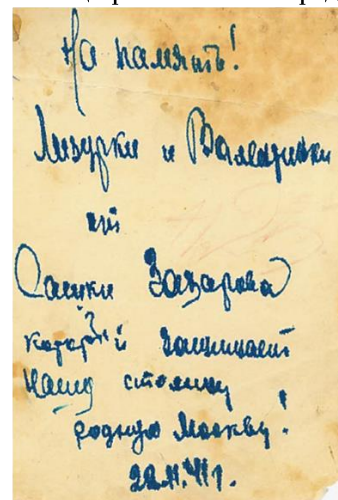 На память!
Лизурки и Валентинки
от
Сашки Захарова
который защищает
нашу столицу
родную Москву!
22.11.41г.